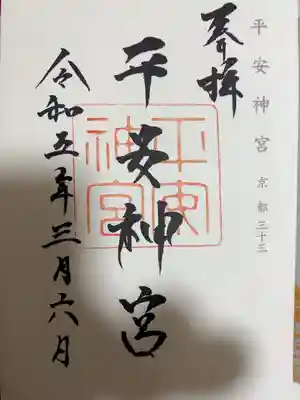 平安神宮 京都三十三
奉拝
平安神宮
平安
神宮
令和五年三月六日